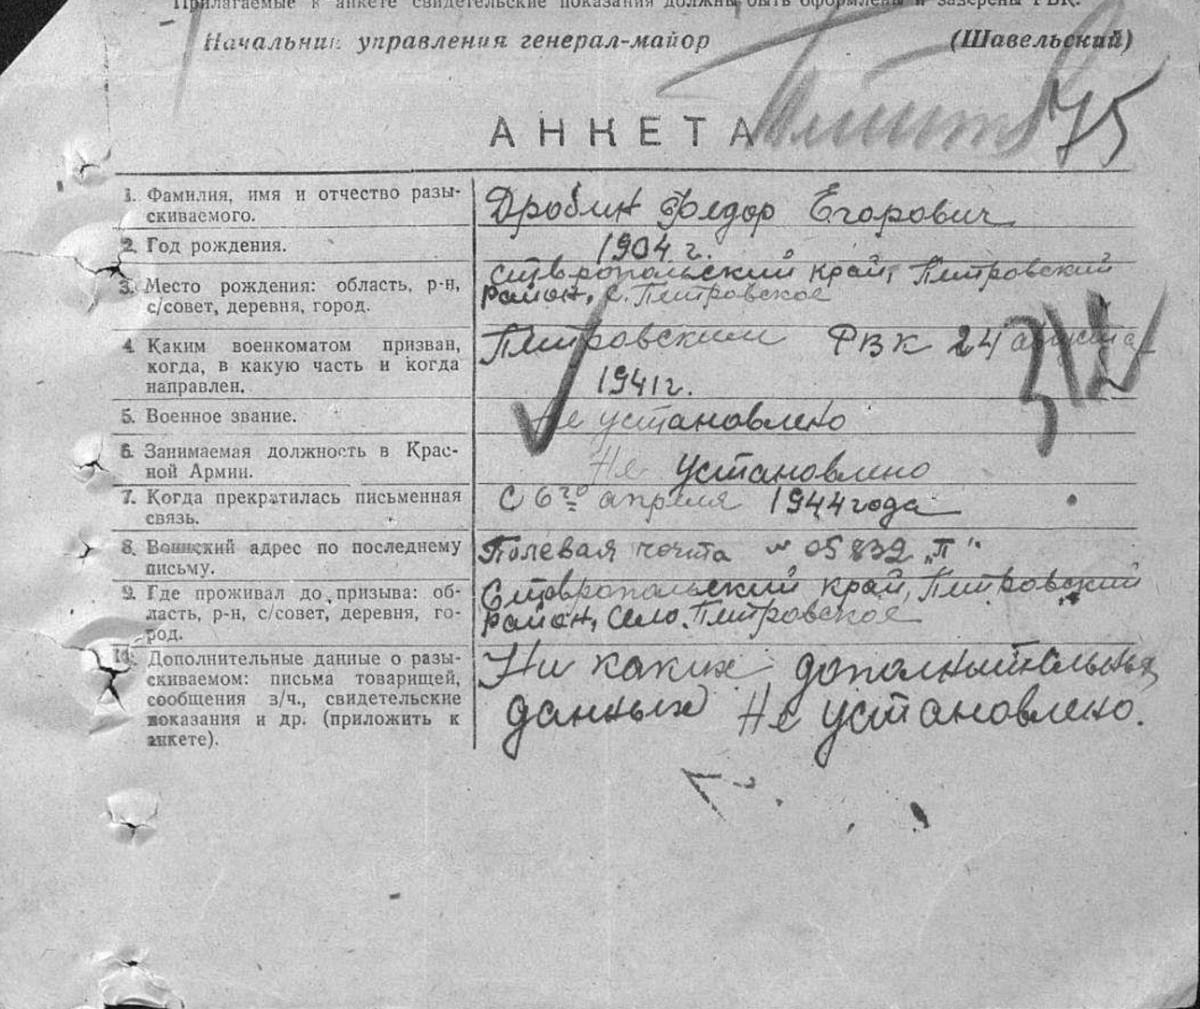 Прилагаемые к анкете свидетельские показания должны быть оформлены и заверены РВК.
Начальник управления генерал-майор (Шавельский)
АНКЕТА
75
1. Фамилия, имя и отчество разы-
скиваемого.
Дробин Федор Егорович
2. Год рождения.
1904 г.
3. Место рождения: область, р-н,
с/совет, деревня, город.
Ставропольский край, Петровский
район, с. Петровское
4. Каким военкоматом призван,
когда, в какую часть и когда
направлен.
Петровским РВК 24 августа
1941 г.
5. Военное звание.
Не установлено
6. Занимаемая должность в Крас-
ной Армии.
Не установлено
7. Когда прекратилась письменная
связь.
С 6го апреля 1944 года
8. Воинский адрес по последнему
письму.
Полевая почта № 05832 „П"
9. Где проживал до призыва: об-
ласть, р-н, с/совет, деревня, го-
род.
Ставропольский край, Петровский
район, село. Петровское
10. Дополнительные данные о разы-
скиваемом: письма товарищей,
сообщения з/ч., свидетельские
показания и др. (приложить к
анкете).
Ни каких дополнытельных
данных Не установлено.